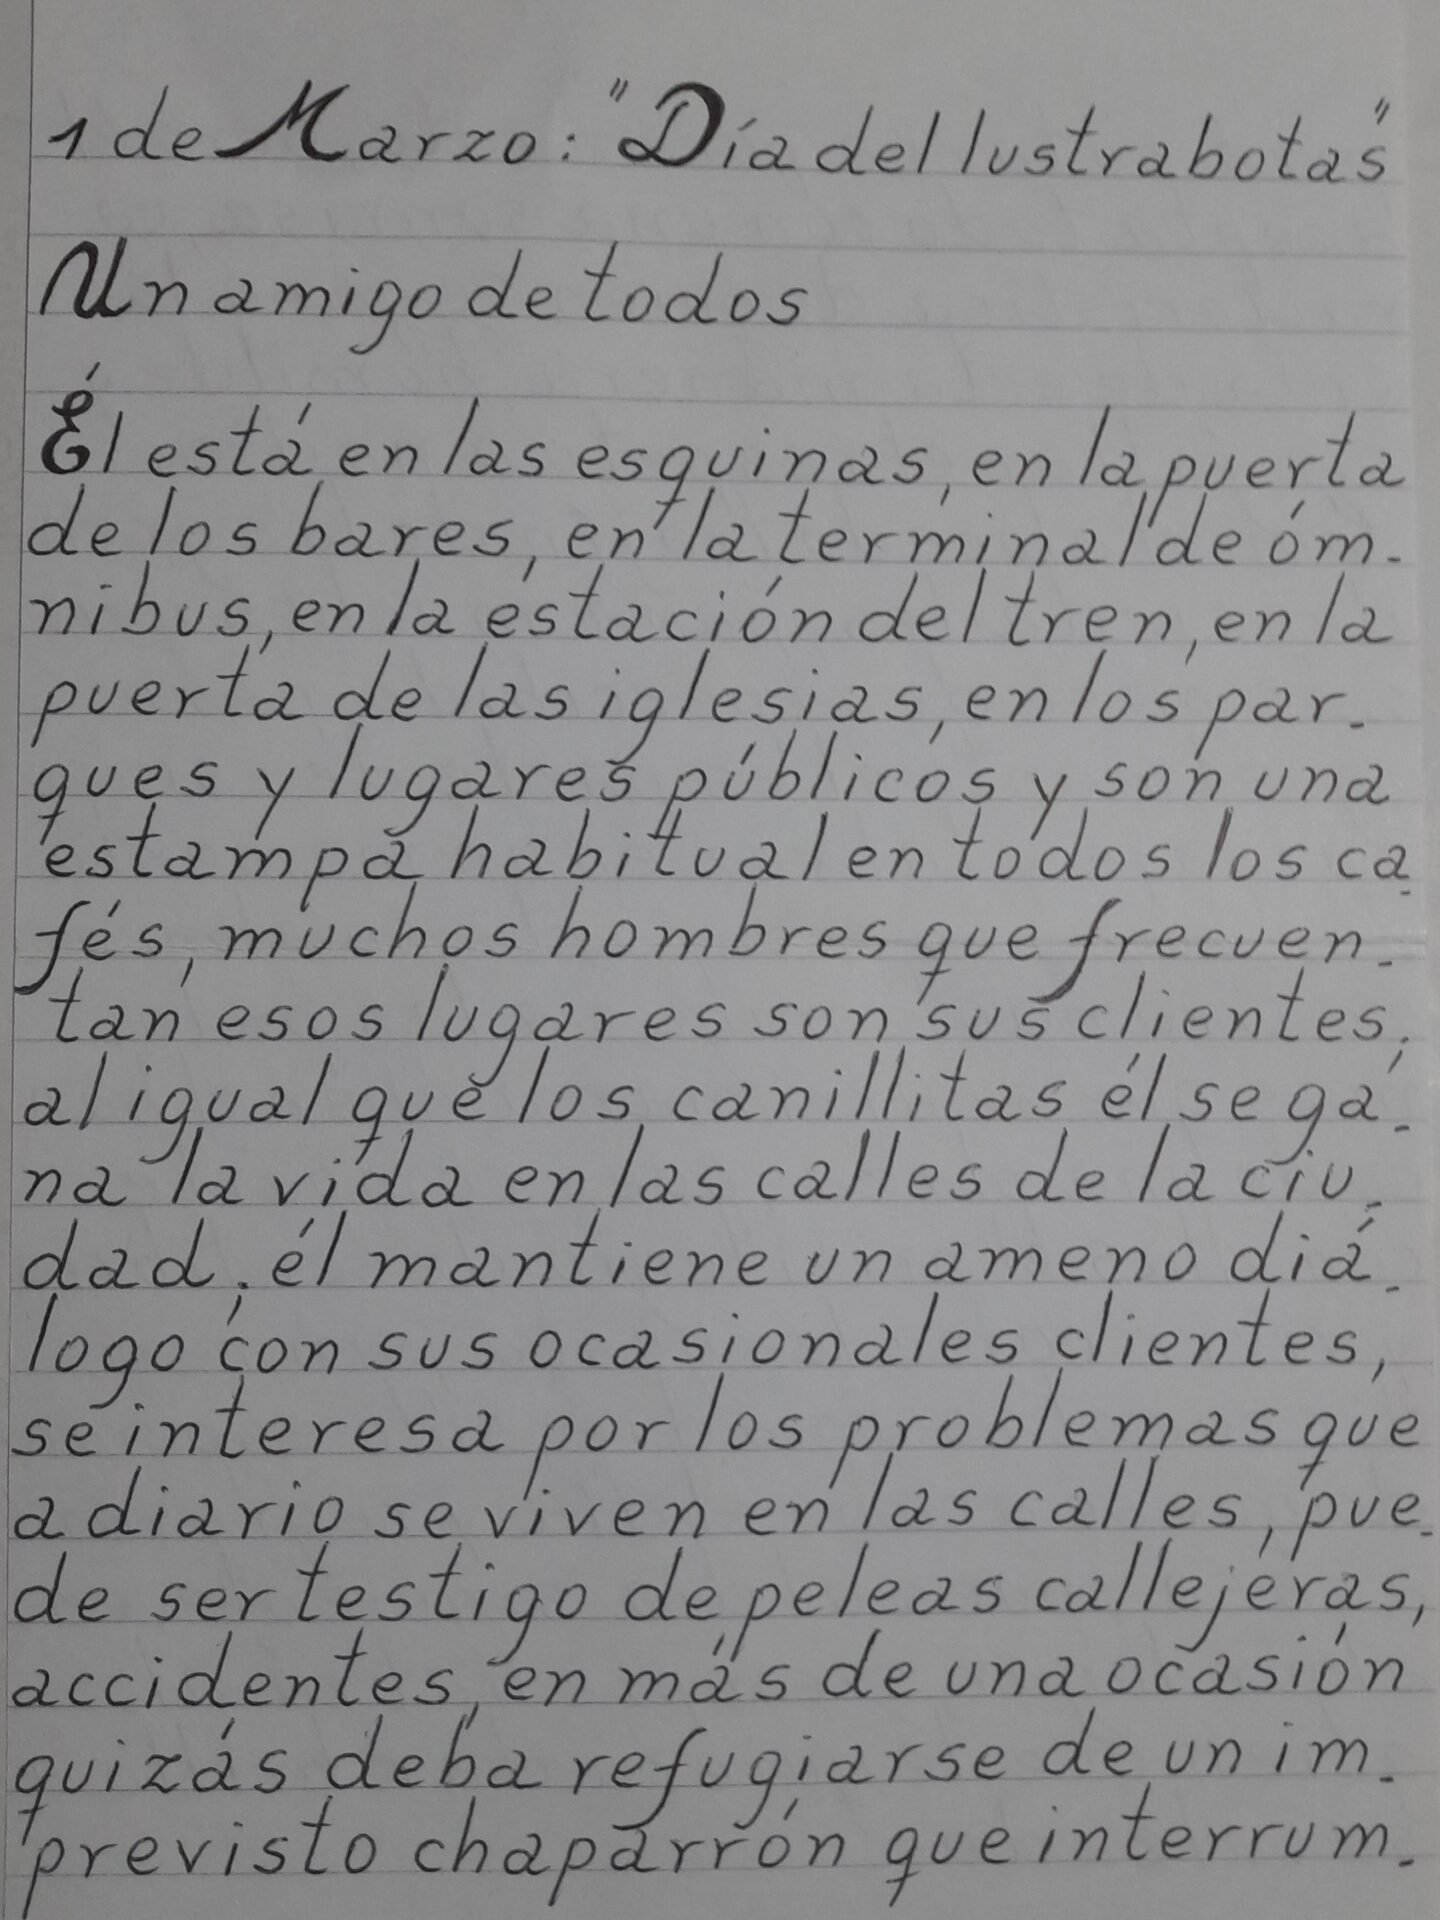 1 de Marzo: "Día del lustrabotas"
Un amigo de todos
Él está en las esquinas, en la puerta
de los bares, en la terminal de óm-
nibus, en la estación del tren, en la
puerta de las iglesias, en los par-
ques y lugares públicos y son una
estampa habitual en todos los ca-
fés, muchos hombres que frecuen-
tan esos lugares son sus clientes;
al igual que los canillitas él se ga-
na la vida en las calles de la ciu-
dad; él mantiene un ameno diá-
logo con sus ocasionales clientes,
se interesa por los problemas que
a diario se viven en las calles, pue-
de ser testigo de peleas callejeras,
accidentes, en más de una ocasión
quizás deba refugiarse de un im-
previsto chaparrón que interrum-